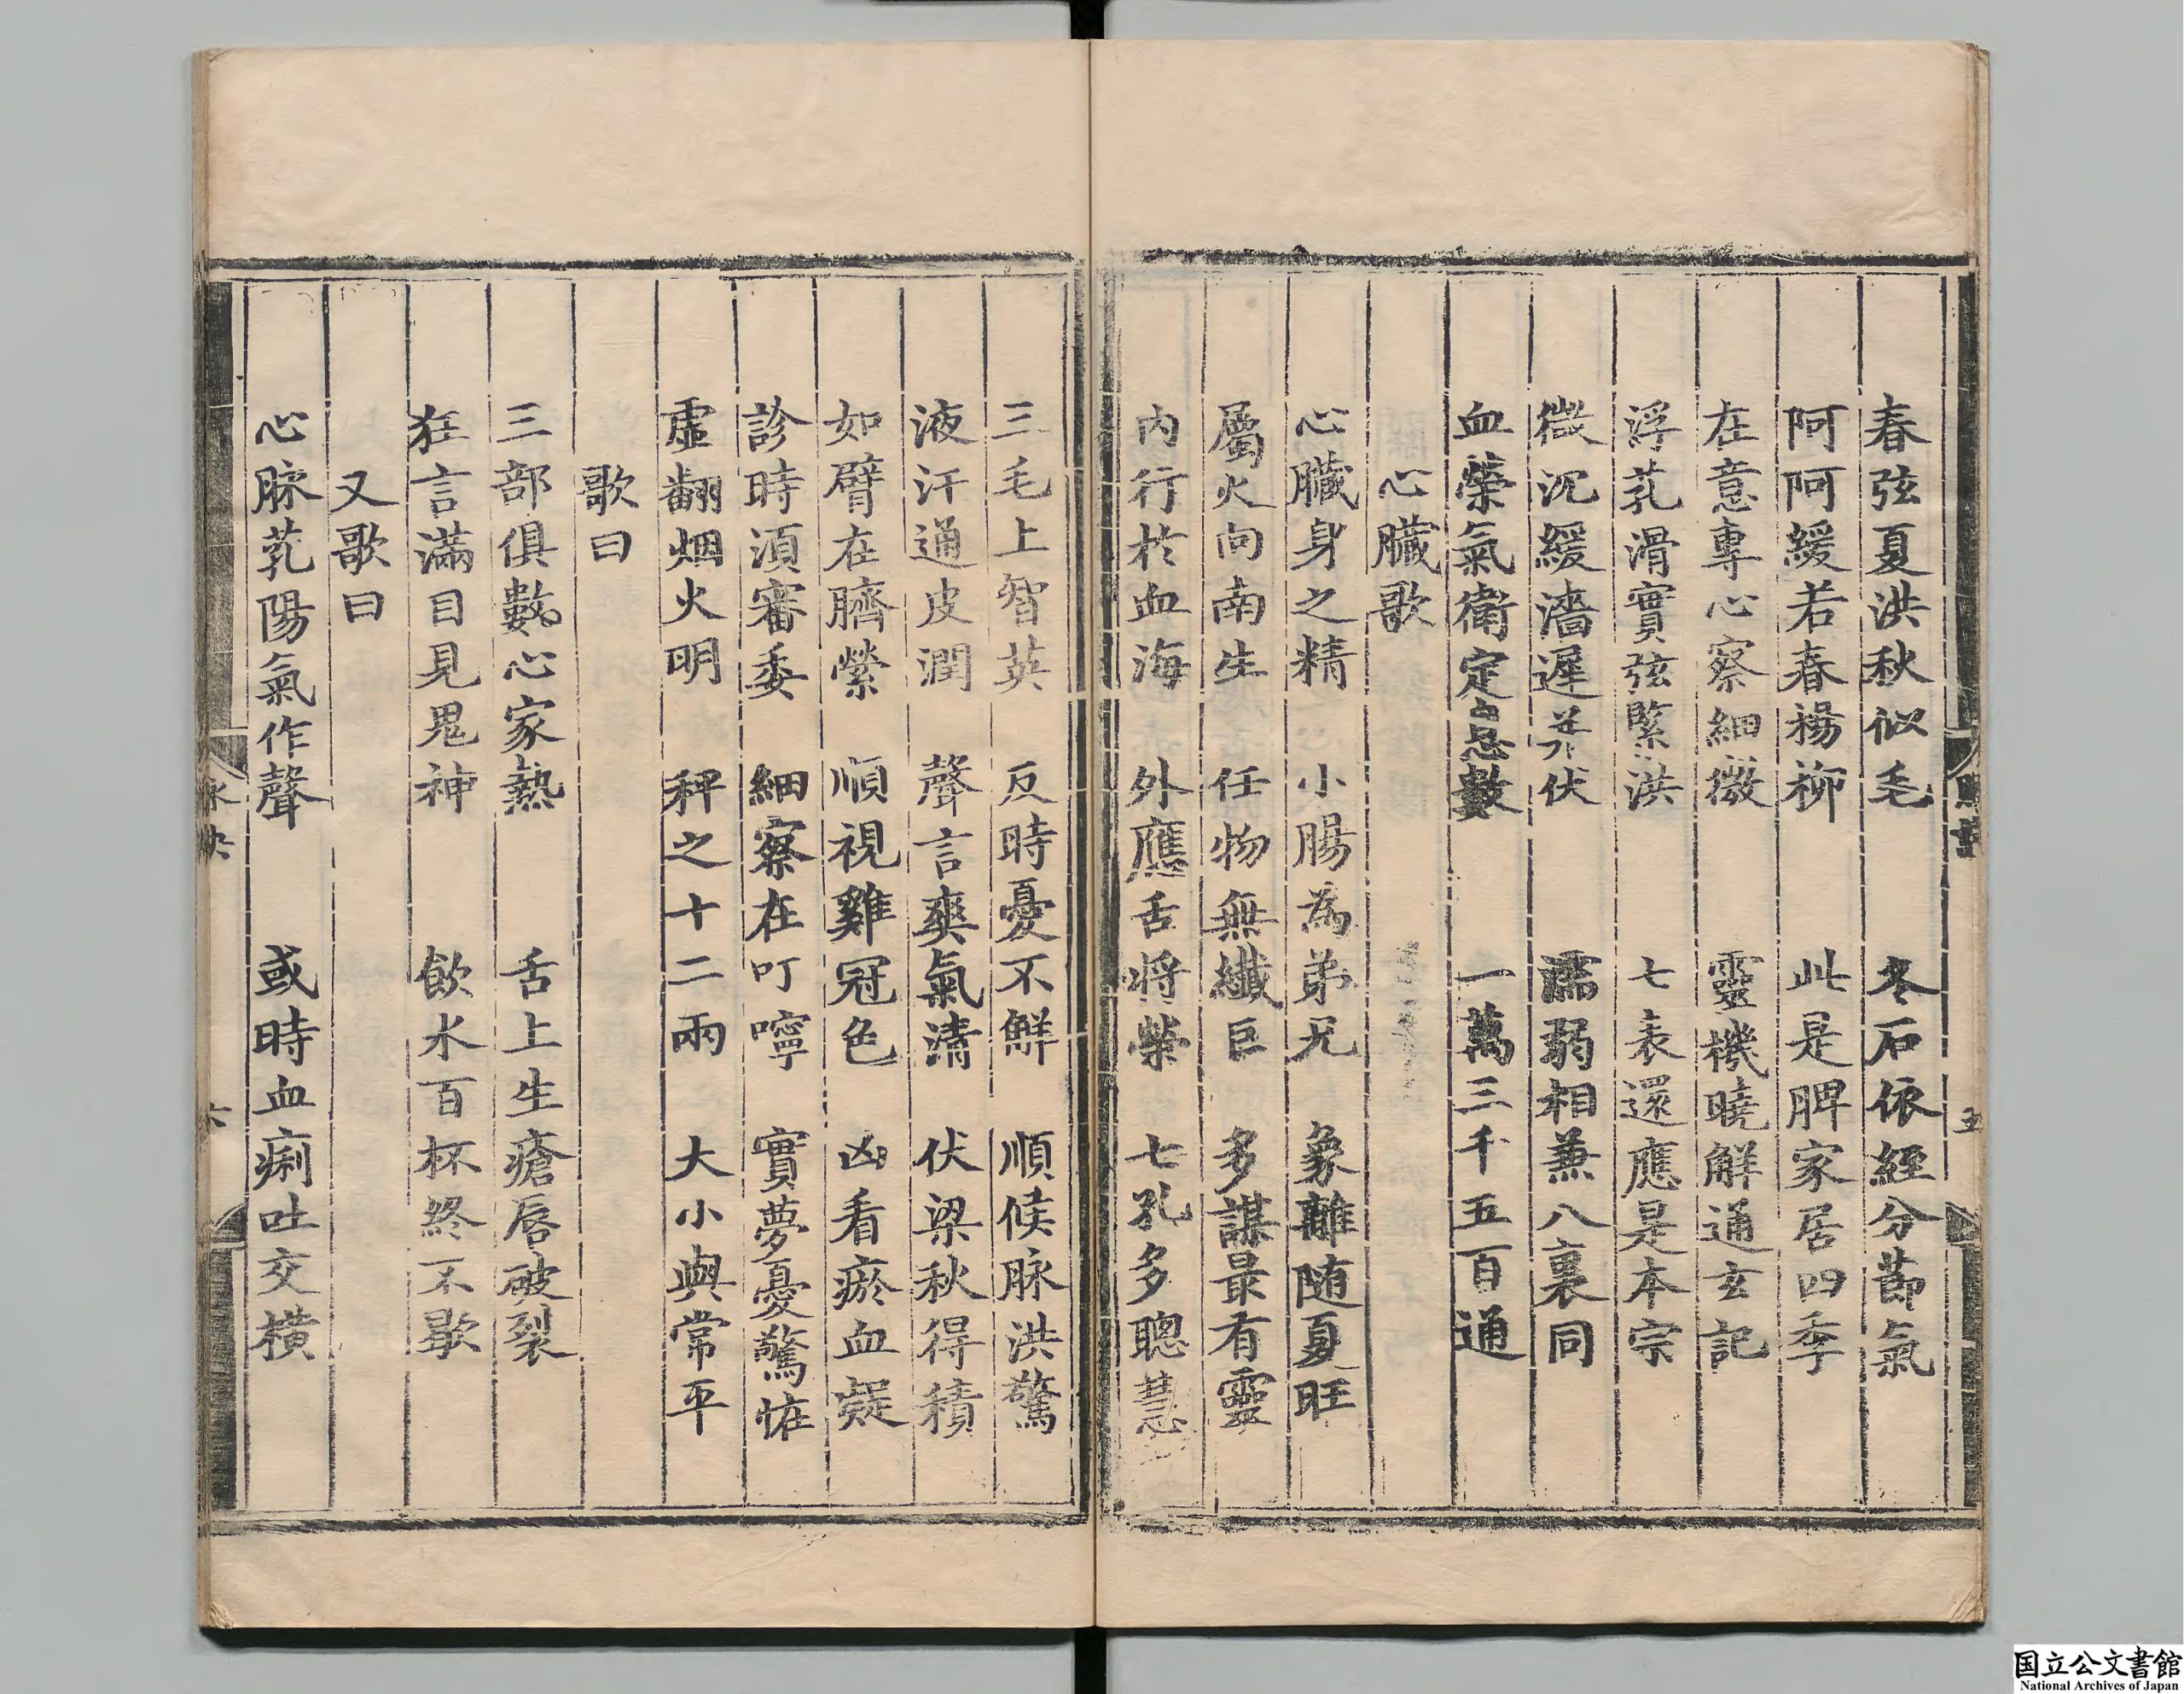 春弦夏洪秋似毛　冬石依經分節氣
阿阿緩若春楊柳　此是脾家居四季
在意專心察細微　靈機曉解通玄記
浮芤滑實弦緊洪　七表還應是本宗
微沉緩濇遲并伏　濡弱相兼八裏同
血榮氣衛定息數　一萬三千五百通
心臟歌
心臟身之精　小腸為弟兄　象離随夏旺
屬火向南生　任物無纖巨　多謀最有靈
内行於血海　外應舌將榮　七孔多聰慧
三毛上智英　反時憂不鮮　順候脉洪驚
液汗通皮潤　聲言爽氣清　伏梁秋得積
如臂在臍縈　順視雞冠色　凶看瘀血凝
診時須審委　細察在叮嚀　實夢憂驚恠
虛翻烟火明　秤之十二兩　大小與常平
歌曰
三部俱數心家熱　舌上生瘡唇破裂
狂言滿目見鬼神　飲水百杯終不歇
又歌曰
心脉芤陽氣作聲　或時血痢吐交横
五
脉訣
六
国立公文書館
National Archives of Japan